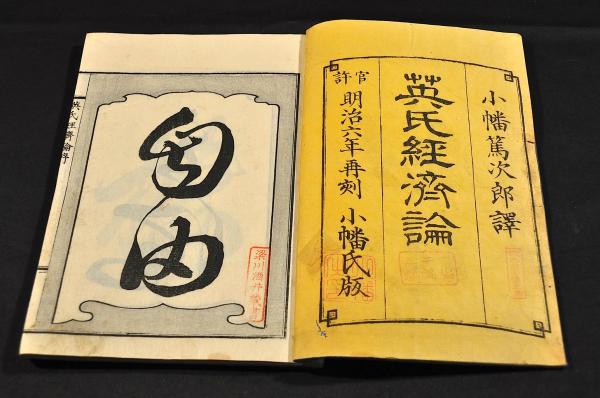 小幡篤次郎譯
英氏經濟論
官許
明治六年再刻 小幡氏版
自由
英氏經濟論